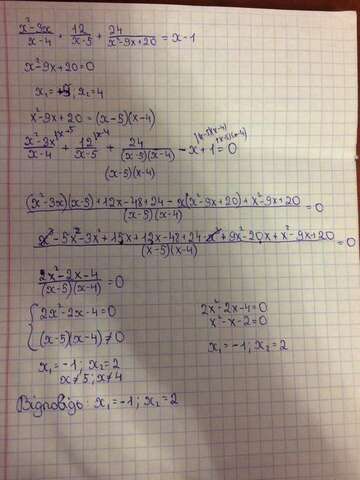 x²-3x/x-4 + 12/x-5 + 24/x²-9x+20 = x-1
x²-9x+20=0
x₁=5; x₂=4
x²-9x+20=(x-5)(x-4)
x²-3x/x-4 + 12/x-5 + 24/(x-5)(x-4) - x+1=0
(x-5)(x-4)
(x²-3x)(x-5)+12x-48+24-x(x²-9x+20)+x²-9x+20/(x-5)(x-4) =0
x³-5x²-3x²+15x+12x-48+24-x³+9x²-20x+x²-9x+20/(x-5)(x-4) =0
2x²-2x-4/(x-5)(x-4) =0
{2x²-2x-4=0
(x-5)(x-4)≠0
x₁=-1; x₂=2
x≠5; x≠4
2x²-2x-4=0
x²-x-2=0
x₁=-1; x₂=2
Відповідь: x₁=-1; x₂=2